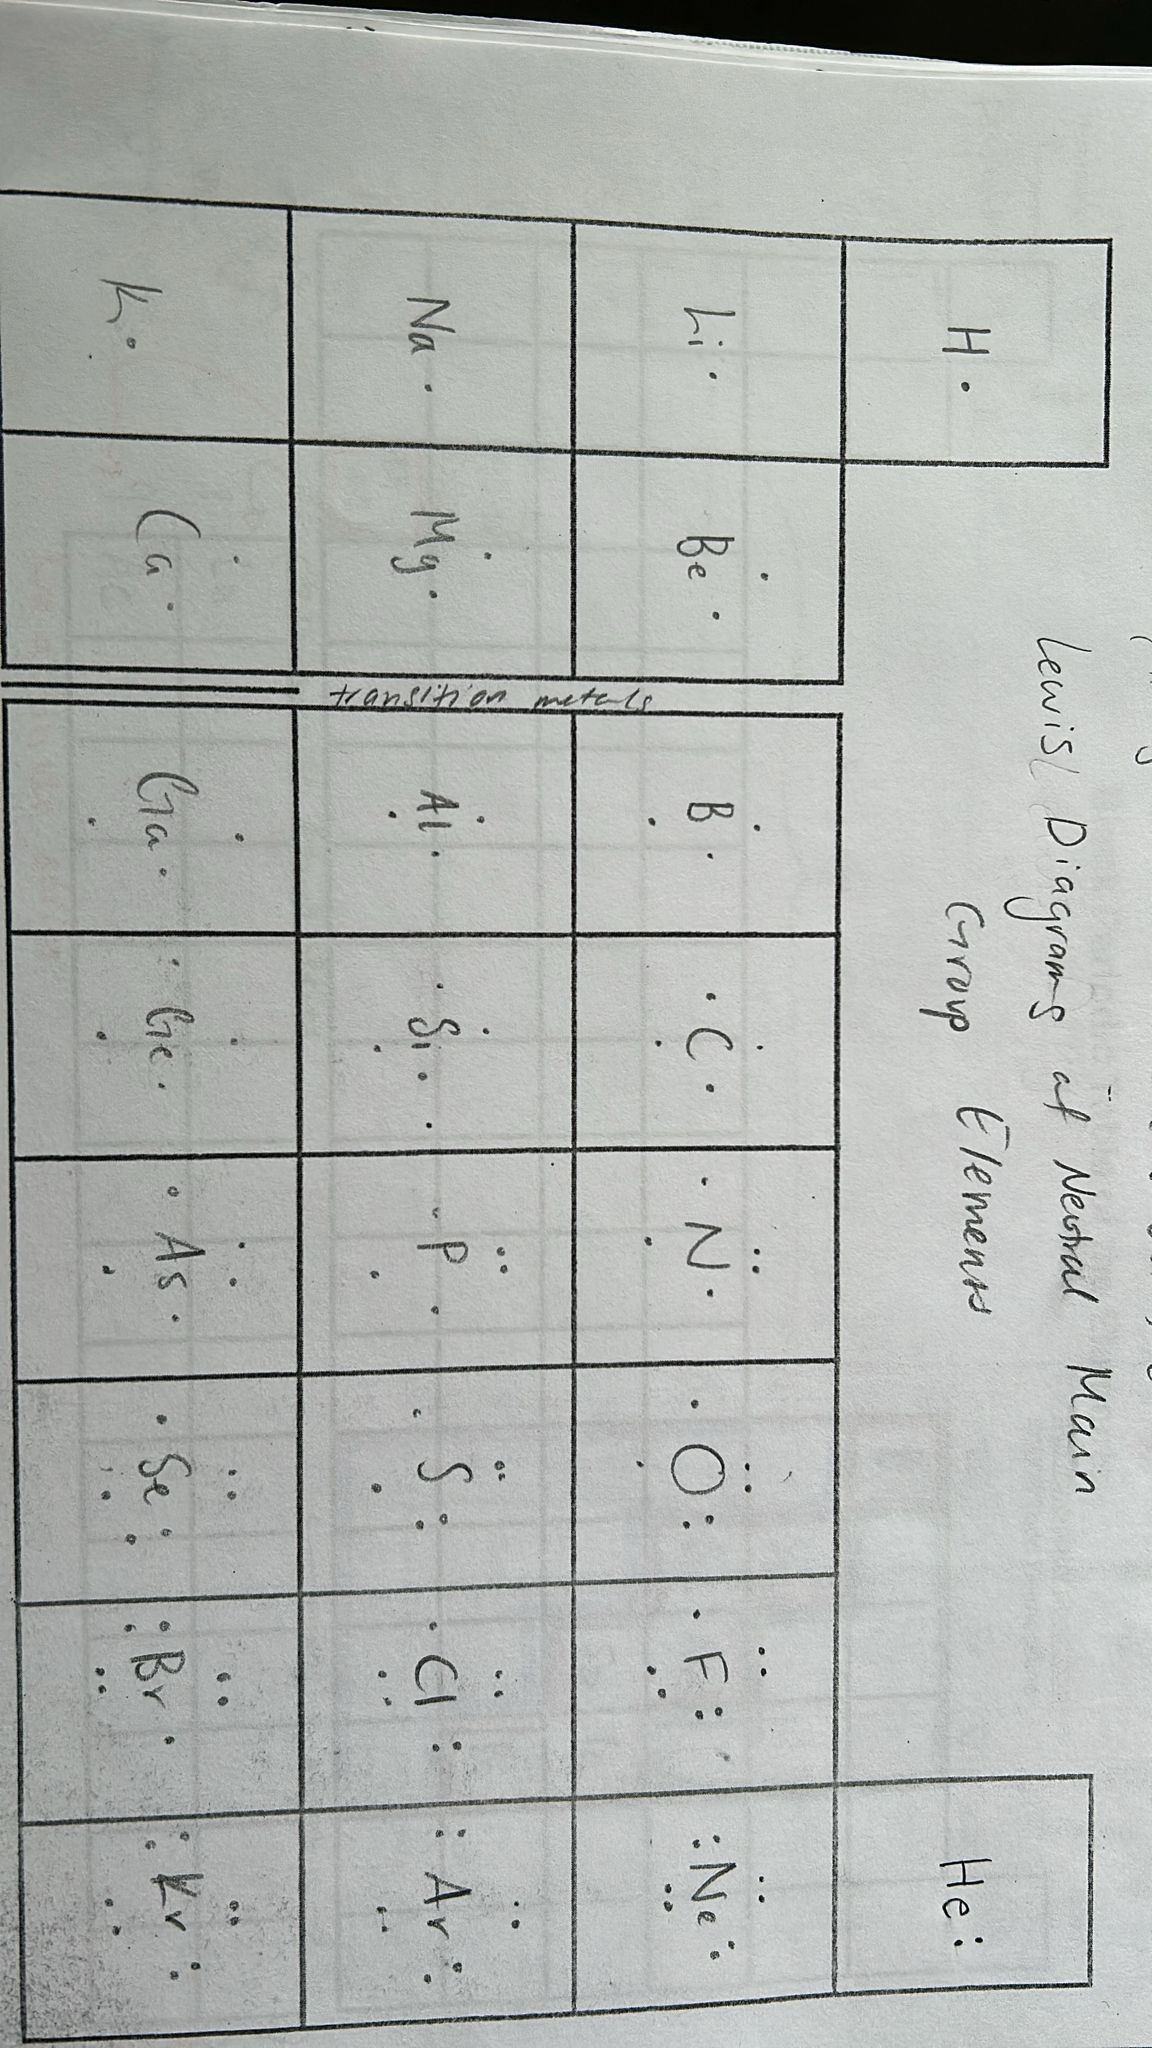 Lewis Diagrams of Neutral Main
Group Elements
H He
Li Be B C N O F Ne
Na Mg Al Si P S Cl Ar
transition metals
K Ca Ga Ge As Se Br Kr